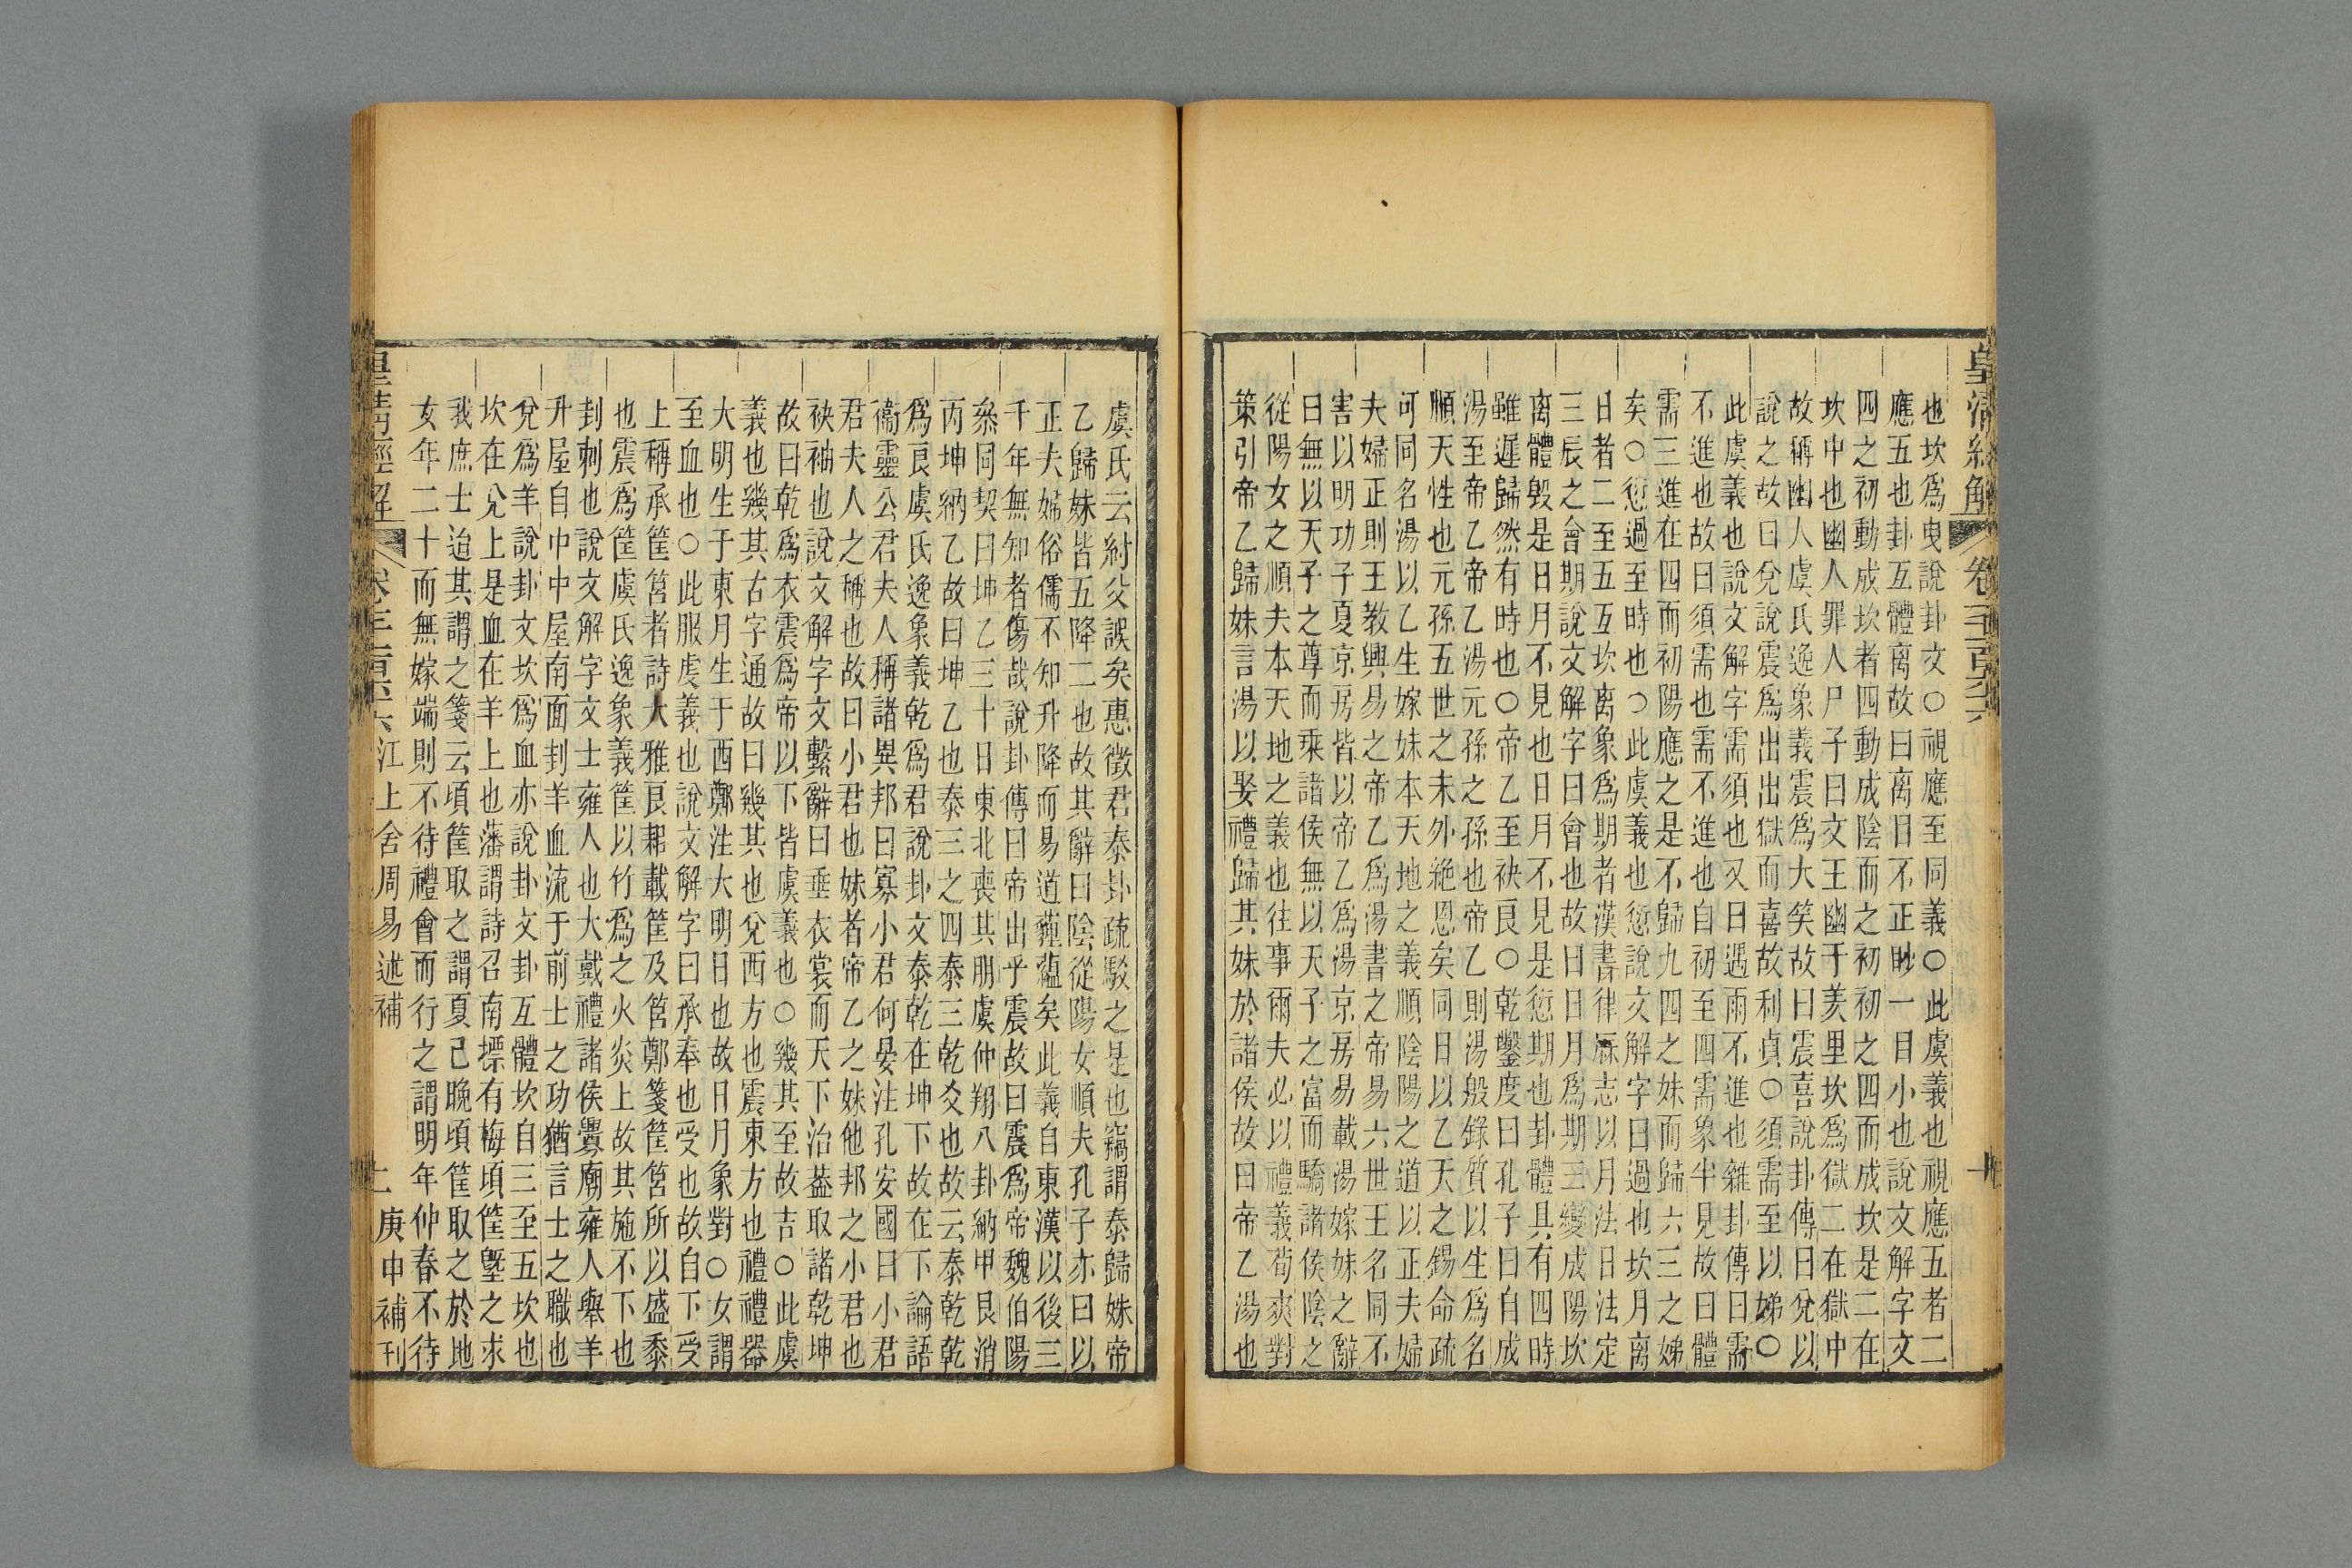 皇清經解 卷三百三十六
也坎爲曳說卦文○視應至同義○此虞義也視應五者二
應五也卦互體离故曰离目不正眇一目小也說文解字文
四之初動成坎者四動成陰而之初初之四而成坎是二在
坎中也幽人罪人尸子曰文王幽于羑里坎爲獄二在獄中
故稱幽人虞氏逸象義震爲大笑故曰震喜說卦傳曰兌以
說之故曰兌說震爲出出獄而喜故利貞○須需至以娣○
此虞義也說文解字需須也又曰遇雨不進也雜卦傳曰需
不進也故曰須需也需不進也自初至四需象半見故曰體
需三進在四而初陽應之是不歸九四之妹而歸六三之娣
矣○愆過至時也○此虞義也愆說文解字曰過也坎月离
日者二至五互坎离象爲期者漢書律厤志以月法日法定
三辰之會期說文解字曰會也故曰日月爲期三變成陽坎
离體毁是日月不見也日月不見是愆期也卦體具有四時
雖遲歸然有時也○帝乙至袂良○乾鑿度曰孔子曰自成
湯至帝乙帝乙湯元孫之孫也帝乙則湯殷錄質以生爲名
順天性也元孫五世之末外絶恩矣同日以乙天之錫命疏
可同名湯以乙生嫁妹本天地之義順陰陽之道以正夫婦
夫婦正則王教興易之帝乙爲湯書之帝易六世王名同不
害以明功子夏京房皆以帝乙爲湯京房易載湯嫁妹之辭
曰無以天子之尊而乘諸侯無以天子之富而驕諸侯陰之
從陽女之順夫本天地之義也往事爾夫必以禮義荀爽對
策引帝乙歸妹言湯以娶禮歸其妹於諸侯故曰帝乙湯也
虞氏云紂父誤矣惠徵君泰卦疏駁之是也竊謂泰歸妹帝
乙歸妹皆五降二也故其辭曰陰從陽女順夫孔子亦曰以
正夫婦俗儒不知升降而易道蕴矣此義自東漢以後三
千年無知者傷哉說卦傳曰帝出乎震故曰震爲帝魏伯陽
叅同契曰坤乙三十日東北喪其朋虞仲翔八卦納甲艮消
丙坤納乙故曰坤乙也泰三之四泰三乾爻也故云泰乾乾
爲良虞氏逸象義乾爲君說卦文泰乾在坤下故在下論語
衞靈公君夫人稱諸異邦曰寡小君何晏注孔安國曰小君
君夫人之稱也故曰小君也妹者帝乙之妹他邦之小君也
袂袖也說文解字文繫辭曰垂衣裳而天下治葢取諸乾坤
故曰乾爲衣震爲帝以下皆虞義也○幾其至故吉○此虞
義也幾其古字通故曰幾其也兌西方也震東方也禮禮器
大明生于東月生于西鄭注大明日也故日月象對○女謂
至血也○此服虔義也說文解字曰承奉也受也故自下受
上稱承筐筥者詩大雅良耜載筐及筥鄭箋筐筥所以盛黍
也震爲筐虞氏逸象義筐以竹爲之火炎上故其施不下也
刲刺也說文解字文士雍人也大戴禮諸侯釁廟雍人舉羊
升屋自中中屋南面刲羊血流于前士之功猶言士之職也
兌爲羊說卦文坎爲血亦說卦文卦互體坎自三至五坎也
坎在兌上是血在羊上也藩謂詩召南摽有梅頃筐塈之求
我庶士迨其謂之箋云頃筐取之謂夏已晚頃筐取之於地
女年二十而無嫁端則不待禮會而行之謂明年仲春不待
皇清經解 卷三百三十六 江上舍周易述補 庚申補刊